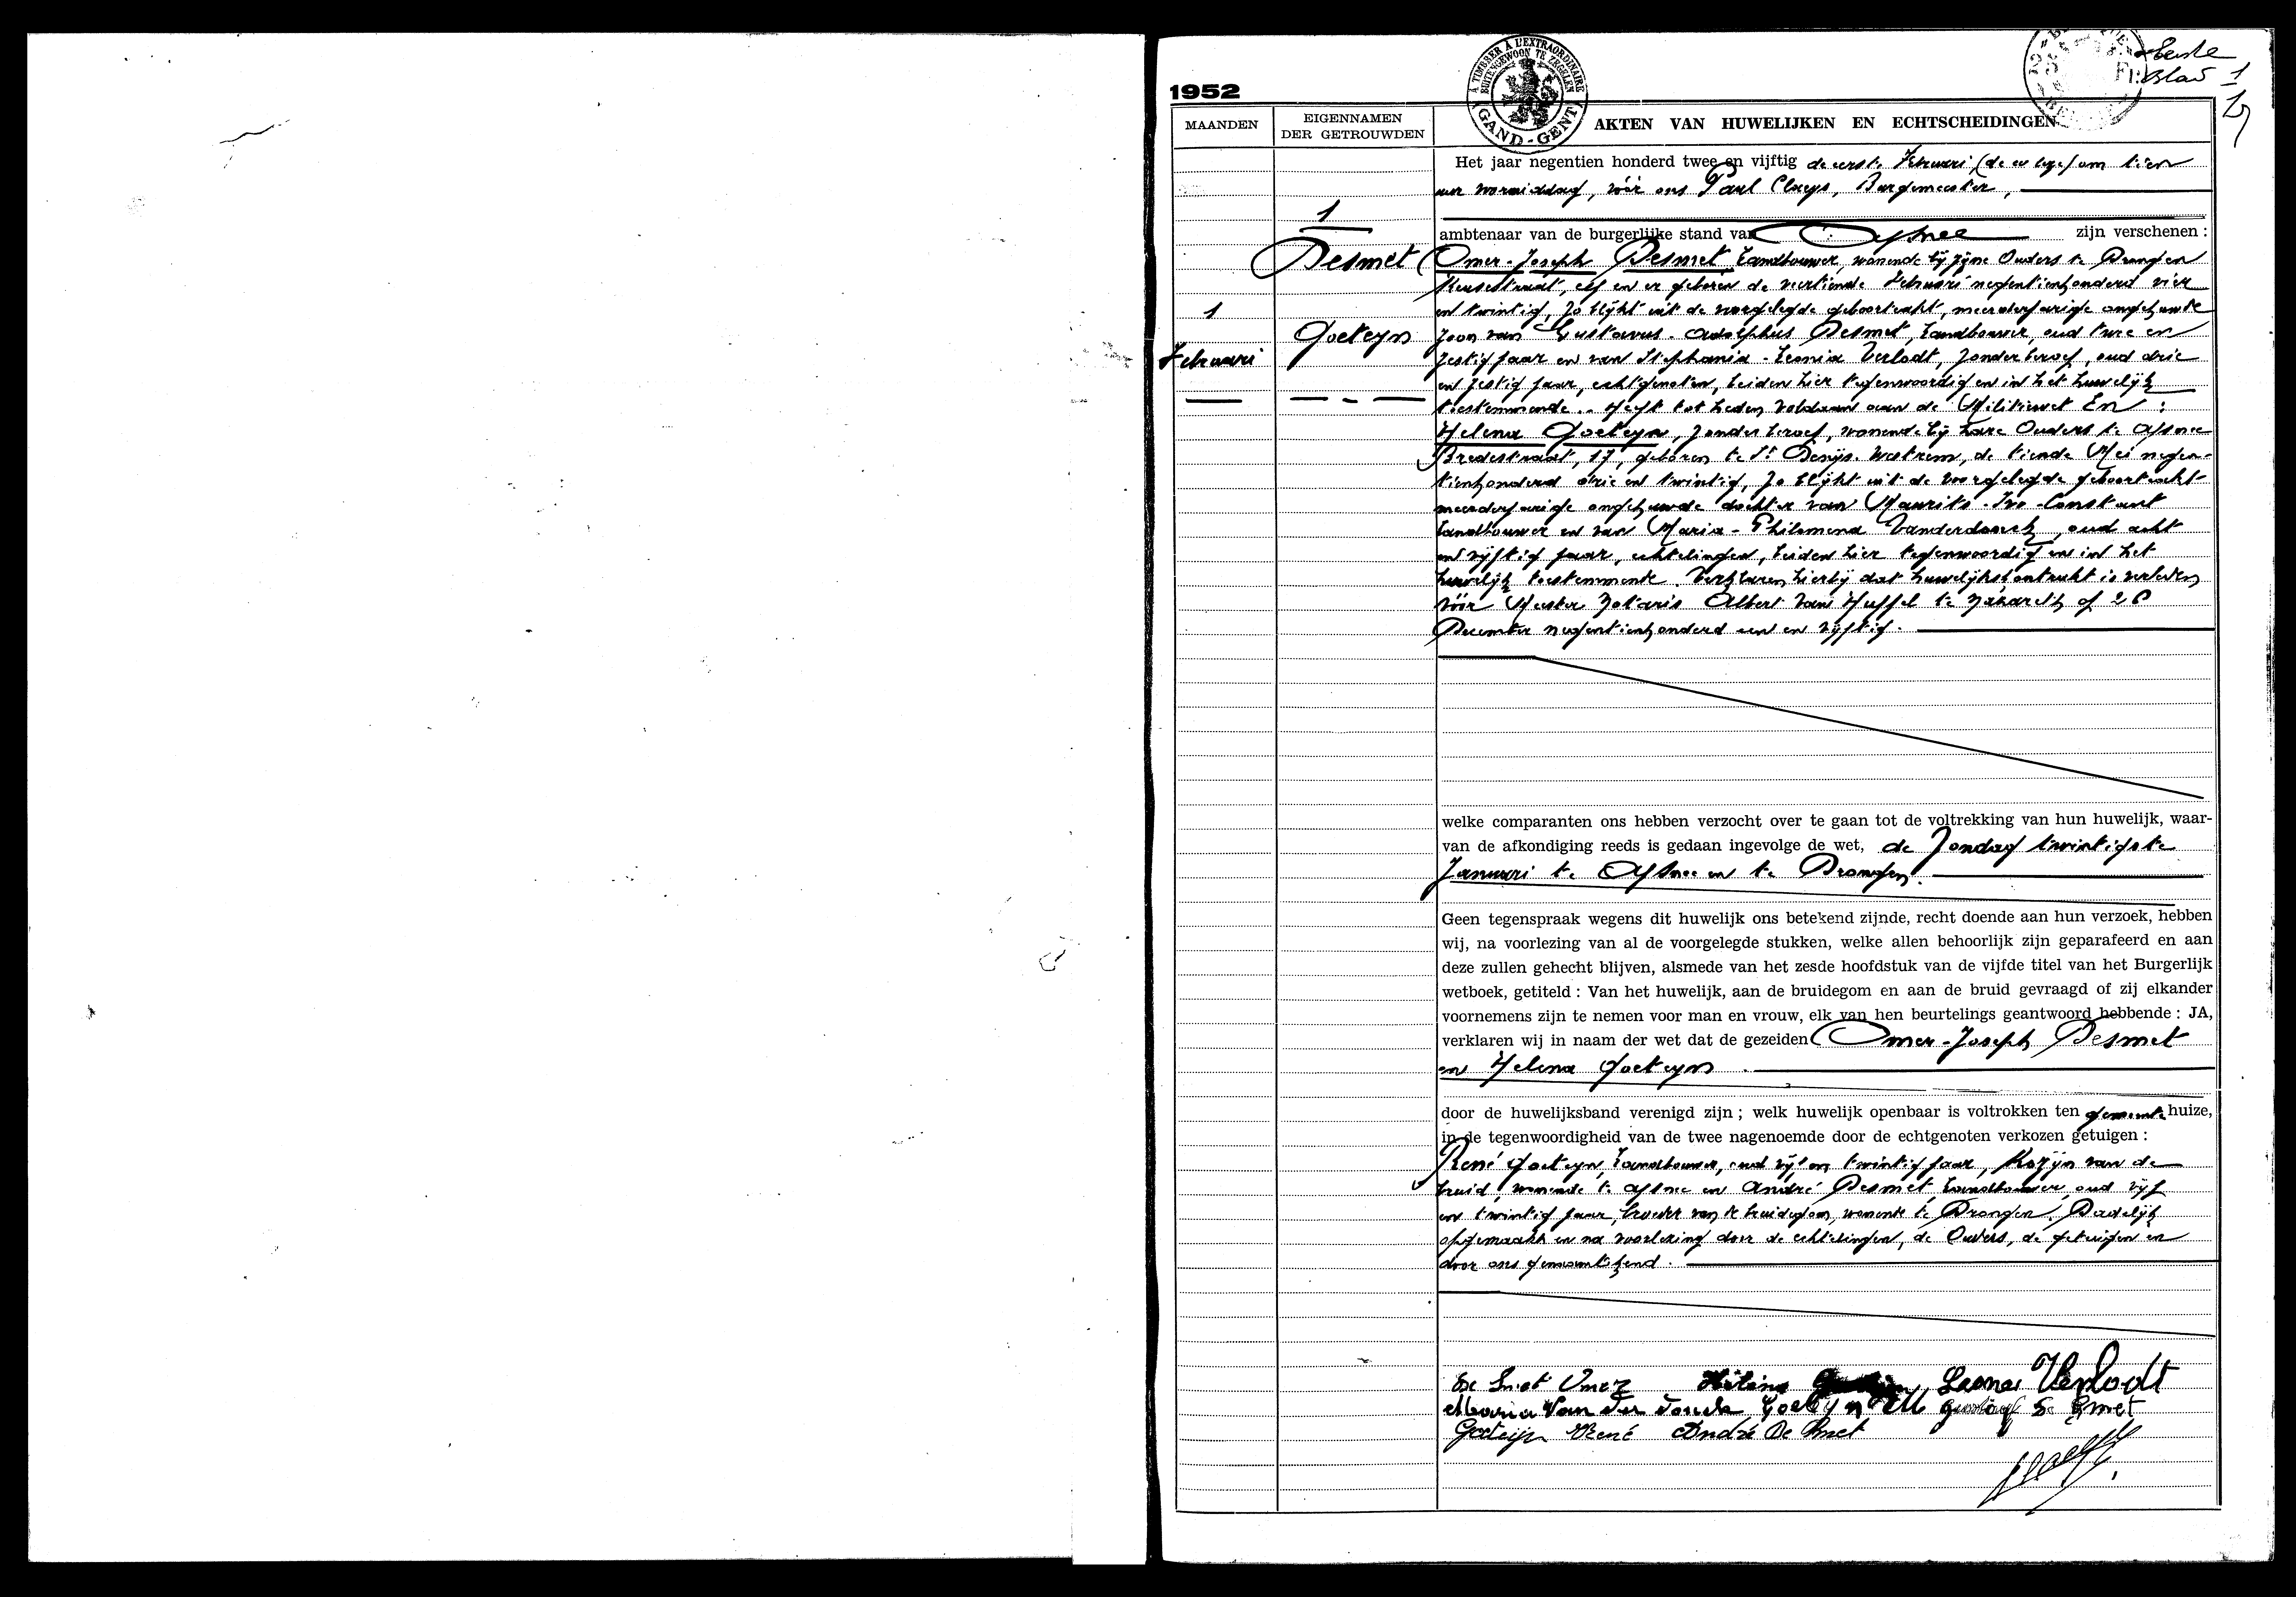 1952
A TIMBRER A L'EXTRAORDINAIRE
BUITENGEWOON TE ZEGELEN
GAND - GENT
Eerste
Blad 1
MAANDEN
EIGENNAMEN
DER GETROUWDEN
AKTEN VAN HUWELIJKEN EN ECHTSCHEIDINGEN
1
Desmet
Goeteyn
1
Februari
Het jaar negentien honderd twee en vijftig de eerste Februari, om tien
uur voormiddag, vóór ons Paul Claeys, Burgemeester,
ambtenaar van de burgerlijke stand van Afsnee zijn verschenen :
Omer-Joseph Desmet, Landbouwer, wonende bij zijne Ouders te Drongen
en er geboren de veertiende Februari negentienhonderd vier
en twintig, zo blijkt uit de voorgelegde geboorteakt, meerderjarige ongehuwde
zoon van Gustavus-Adolphus Desmet, Landbouwer, oud twee en
zestig jaar en van Stephania-Leonia Verlodt, zonder beroep, oud drie
en zestig jaar, echtgenoten, beiden hier tegenwoordig en in het huwelijk
toestemmende. Heeft tot heden voldaan aan de Militiewet En :
Helena Goeteyn, zonder beroep, wonende bij hare Ouders te Afsnee
Bredestraat, 17, geboren te St Denijs-Westrem, de tiende Mei negen-
tienhonderd drie en twintig, zo blijkt uit de voorgelegde geboorteakt
meerderjarige ongehuwde dochter van Maurits-Ivo-Constant
Landbouwer en van Maria-Philomena Vanderdonck, oud acht
en vijftig jaar, echtelingen, beiden hier tegenwoordig en in het
huwelijk toestemmende. Verklaren hierbij dat huwelijkskontrakt is verleden
vóór Meester Notaris Albert Van Huffel te op
December negentienhonderd een en vijftig.
welke comparanten ons hebben verzocht over te gaan tot de voltrekking van hun huwelijk, waar-
van de afkondiging reeds is gedaan ingevolge de wet, de Zondag twintigste
Januari te Afsnee en te Drongen.
Geen tegenspraak wegens dit huwelijk ons betekend zijnde, recht doende aan hun verzoek, hebben
wij, na voorlezing van al de voorgelegde stukken, welke allen behoorlijk zijn geparafeerd en aan
deze zullen gehecht blijven, alsmede van het zesde hoofdstuk van de vijfde titel van het Burgerlijk
wetboek, getiteld : Van het huwelijk, aan de bruidegom en aan de bruid gevraagd of zij elkander
voornemens zijn te nemen voor man en vrouw, elk van hen beurtelings geantwoord hebbende : JA,
verklaren wij in naam der wet dat de gezeiden Omer-Joseph Desmet
en Helena Goeteyn
door de huwelijksband verenigd zijn ; welk huwelijk openbaar is voltrokken ten gemeente huize,
in de tegenwoordigheid van de twee nagenoemde door de echtgenoten verkozen getuigen :
René Goeteyn, Landbouwer, oud vijf en twintig jaar, Kozijn van de
bruid, wonende te Afsnee en André Desmet, Landbouwer, oud vijf
en twintig jaar, broeder van de bruidegom, wonende te Drongen. Dadelijk
opgemaakt en na voorlezing door de echtelingen, de Ouders, de getuigen en
door ons
De Smet Omer Helena Leonie Verlodt
Maria Van Der Donck Goeteyn M Gustaaf De Smet
Goeteijn René André De Smet